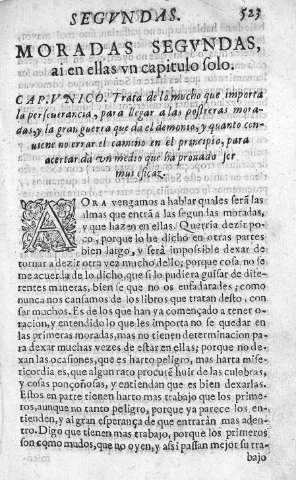 SEGVNDAS. 523
MORADAS SEGVNDAS,
ai en ellas vn capitulo solo.
CAP. VNICO. Trata de lo mucho que importa
la perseuerancia, para llegar a las postreras mora-
das, y la gran guerra que da el demonio, y quanto con-
uiene no errar el camino en el principio, para
acertar. da vn medio que ha prouado ser
mui eficaz.
AORA vengamos a hablar quales serã las
almas que entrã a las segundas moradas,
y que hazen en ellas. Querria dezir po-
co, porque lo he dicho en otras partes
bien largo, y serà impossible dexar de
tornar a dezir otra vez mucho dello, porque cosa no se
me acuerda de lo dicho, que si lo pudiera guisar de dife-
rentes maneras, bien se que no os enfadarades, como
nunca nos cansamos de los libros que tratan desto, con
sar muchos. Es de los que han ya començado a tener o-
racion, y entendido lo que les importa no se quedar en
las primeras moradas, mas no tienen determinacion pa-
ra dexar muchas vezes de estar en ellas; porque no de-
xan las ocasiones, que es harto peligro, mas harta mise-
ricordia es, que algun rato procurẽ huir de las culebras,
y cosas ponçoñosas, y entiendan que es bien dexarlas.
Estos en parte tienen harto mas trabajo que los prime-
ros, aunque no tanto peligro, porque ya parece los en-
tienden, y ai gran esperança de que entraràn mas aden-
tro. Digo que tienen mas trabajo, porque los primeros
son como mudos, que no oyen, y assi passan mejor su tra-
bajo